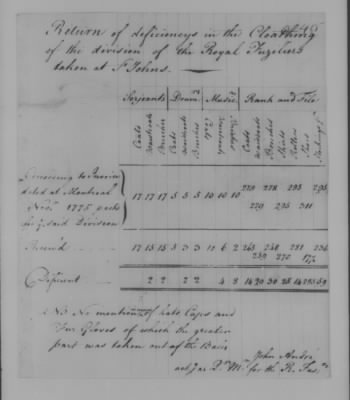 Return of deficiencys in the Cloathing
of the division of the Royal Fuzeliers
taken at St. Johns.
Serjeants Drumrs Musick Rank and File
Coats Waistcoats Breeches Coats Waistcoats Breeches Coats Waistcoats Breeches Coats Waistcoats Breeches Shirts Rollers Shoes Stockings
According to Inventory
dated at Montreal 17 17 17 5 5 5 10 10 10 279 279 278 295 295 311 295
Novr. 1775
said Division
17 15 15 5 3 3 6 2 265 259 248 270 281 236
Deficient 2 2 2 2 4 8 14 20 30 25 14 59
NB. No mention of hats Caps and
Fur Gloves of which the greater
part was taken out of the Barn
John André
act'g as Qr. Mr. for the R. Fusrs